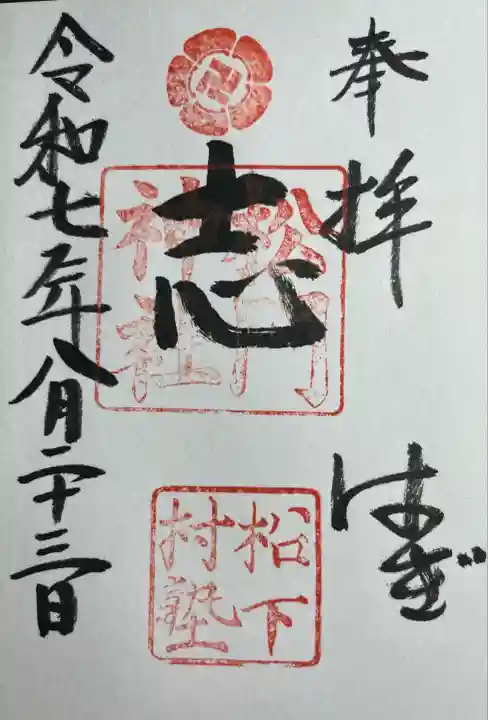 奉拝
はぎ
志
松門神社
松下村塾
令和七年八月二十三日